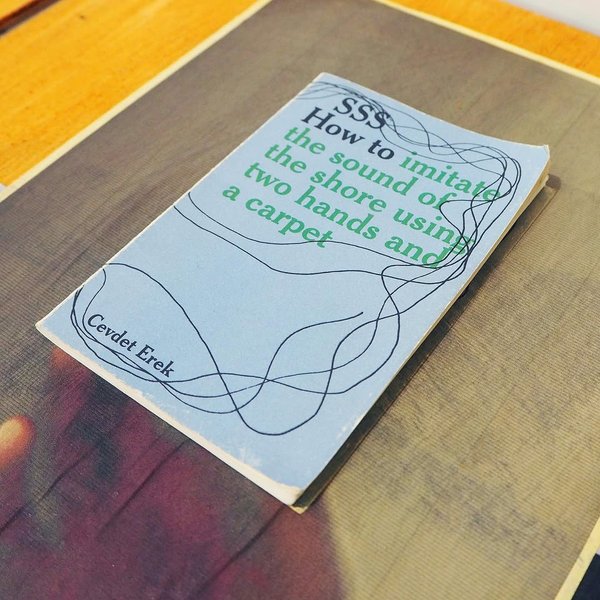 SSS
How to imitate
the sound of
the shore using
two hands and
a carpet
Cevdet Erek